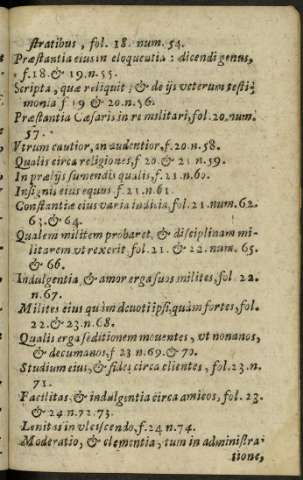 stratibus, fol. 18. num. 54.
Præstantia eius in eloquentia : dicendi genus,
f. 18. & 19. n. 55.
Scripta, quæ reliquit ; & de ijs veterum testi-
monia f 19 & 20. n. 56.
Præstantia Cæsaris in re militari, fol. 20. num.
57.
Vtrum cautior, an audentior, f. 20. n. 58.
Qualis circa religiones, f 20. & 21 n. 59.
In prælijs sumendis qualis, f. 21. n. 60.
Insignis eius equus f. 21. n. 61.
Constantiæ eius varia indicia, fol. 21. num. 62.
63. & 64.
Qualem militem probaret, & disciplinam mi-
litarem vt rexerit, fol. 21. & 22. num. 65.
& 66.
Indulgentia & amor erga suos milites, fol. 22.
n. 67.
Milites eius quàm deuoti ipsi, quàm fortes, fol.
22. & 23. n. 68.
Qualis erga seditionem mouentes, vt nonanos,
& decumanos, f 23 n. 69. & 70.
Studium eius, & fides circa clientes, fol. 23. n.
71.
Facilitas, & indulgentia circa amicos, fol. 23.
& 24. n. 72. 73.
Lenitas in vlciscendo, f. 24 n. 74.
Moderatio, & clementia, tum in administra-
tione,